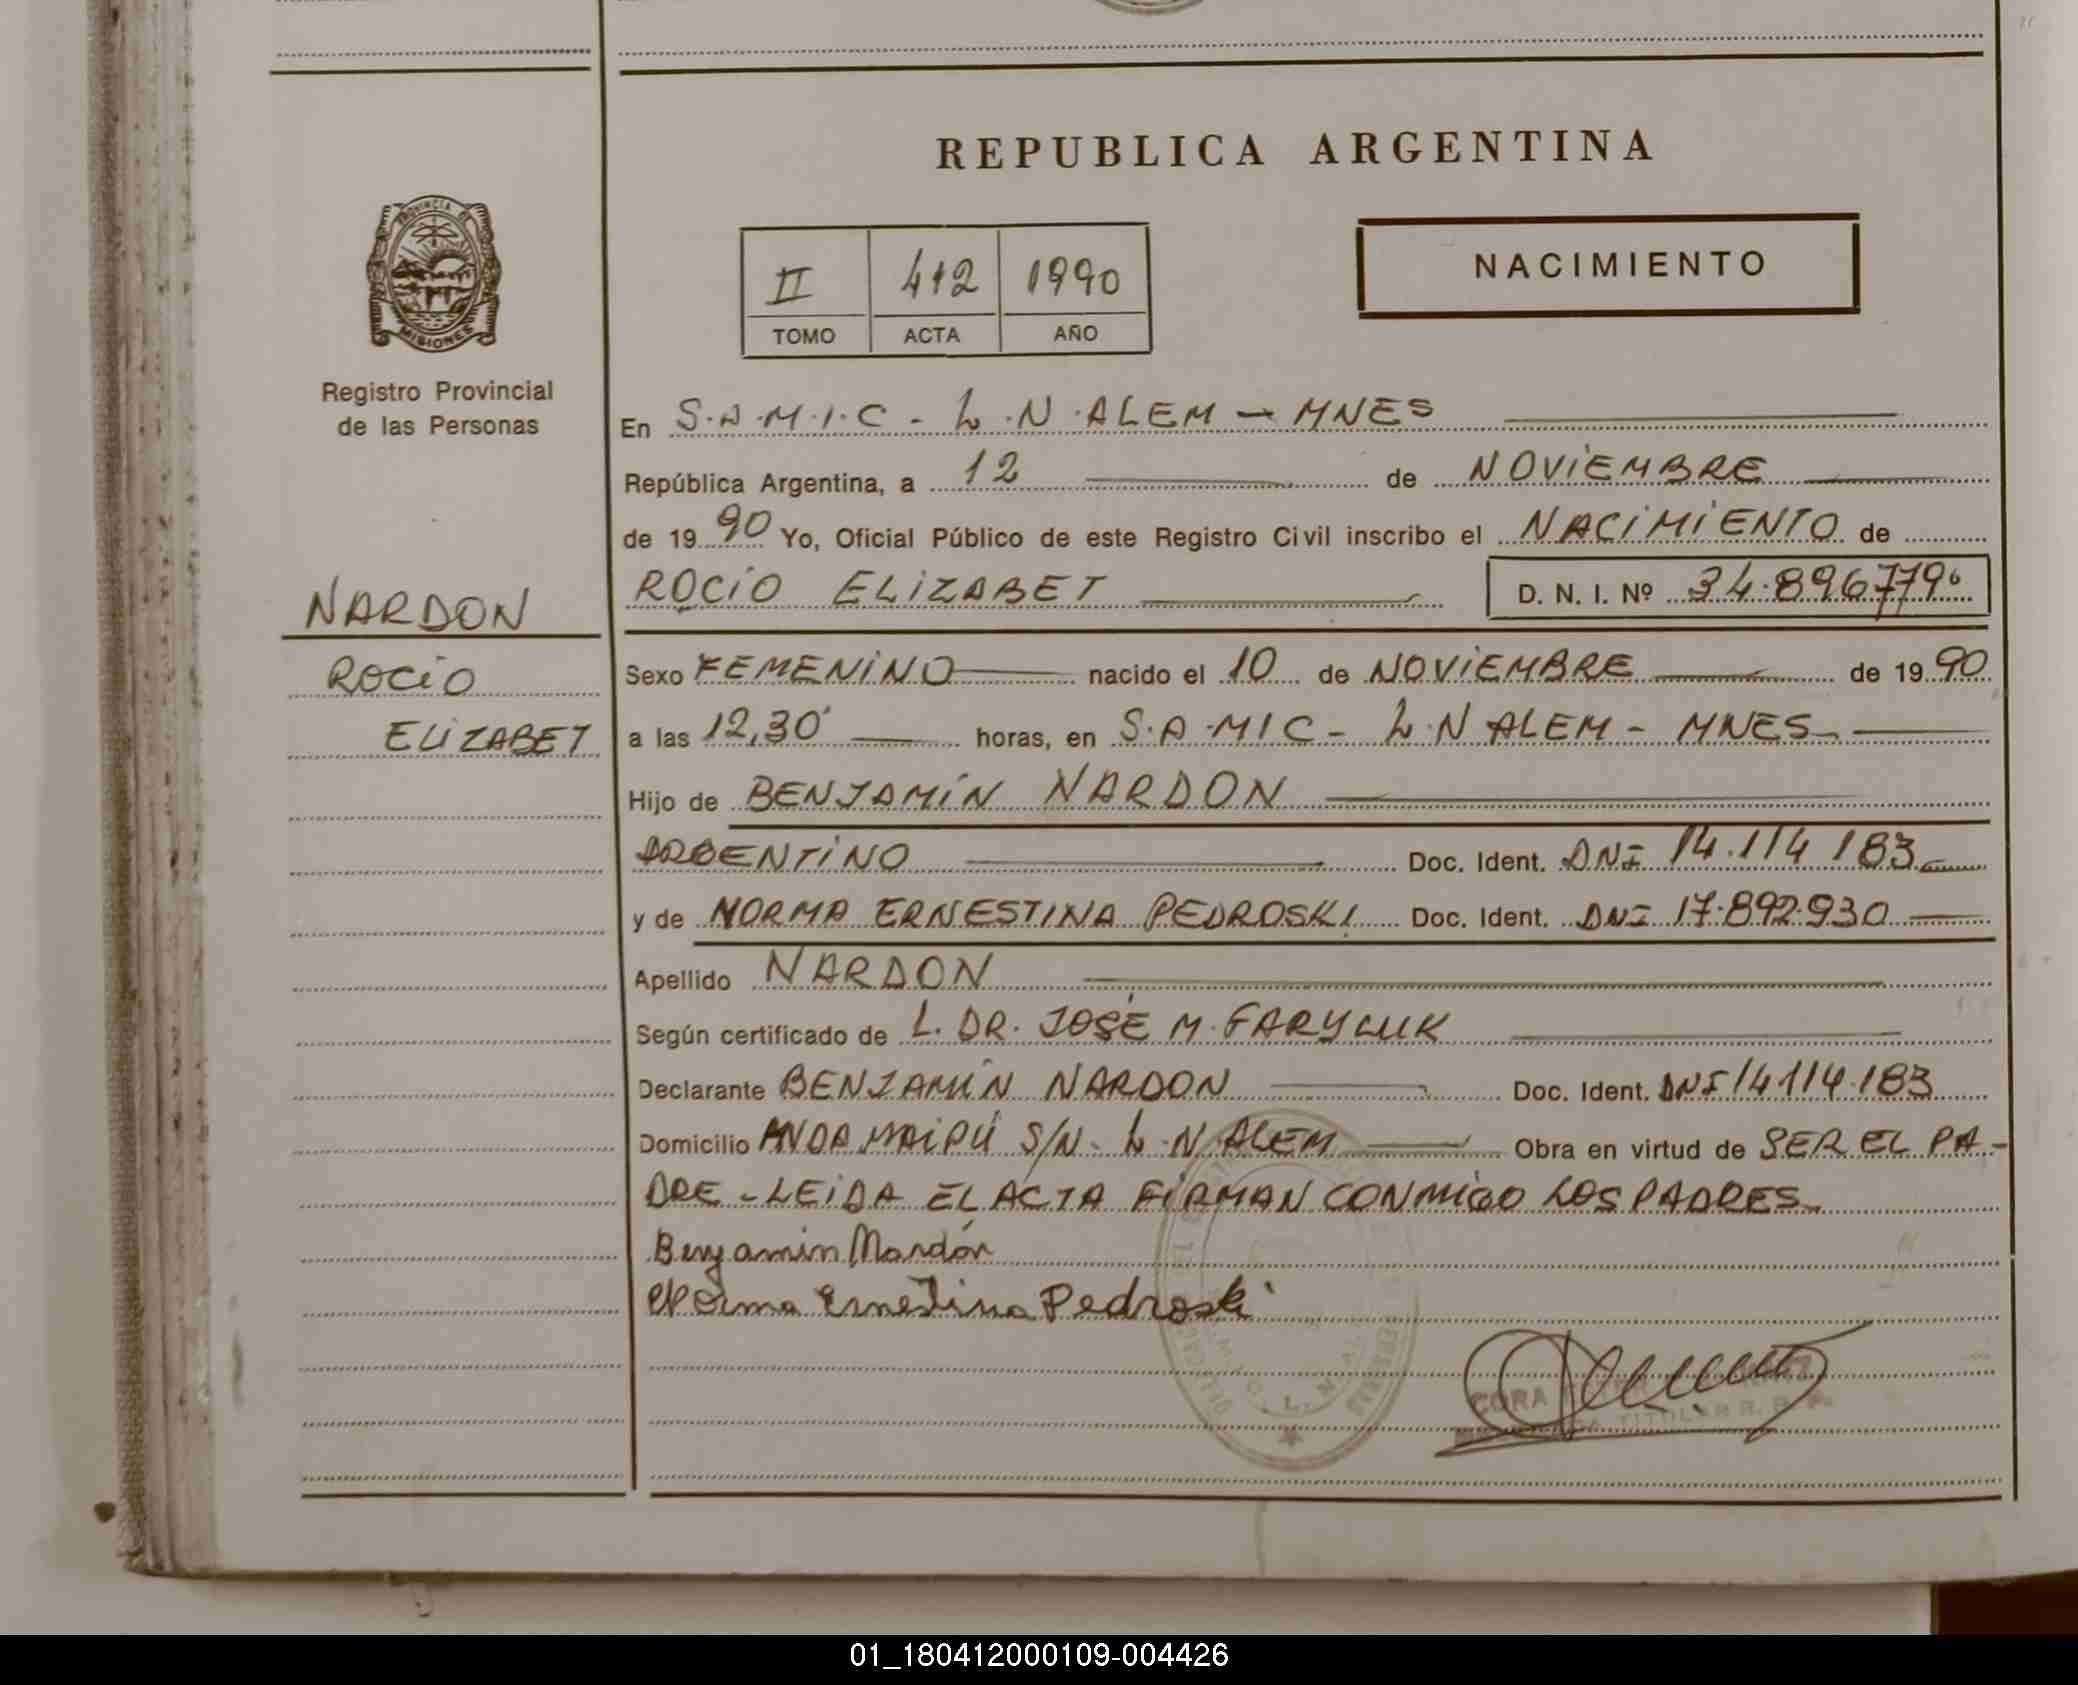 REPUBLICA ARGENTINA
PROVINCIA DE
MISIONES
Registro Provincial
de las Personas
II 412 1990
TOMO ACTA AÑO
NACIMIENTO
En S.A.M.I.C - L.N.ALEM - MNES
República Argentina, a 12 de NOVIEMBRE
de 1990 Yo, Oficial Público de este Registro Civil inscribo el NACIMIENTO de
ROCIO ELIZABET D. N. I. Nº 34.896779
NARDON
ROCIO
ELIZABET
Sexo FEMENINO nacido el 10 de NOVIEMBRE de 1990
a las 12,30 horas, en S.A.MIC - L.N ALEM - MNES
Hijo de BENJAMÍN NARDON
ARGENTINO Doc. Ident. DNI 14.114 183
y de NORMA ERNESTINA PEDROSKI Doc. Ident. DNI 17.892.930
Apellido NARDON
Según certificado de L. DR. JOSÉ M. FARYLUK
Declarante BENJAMÍN NARDON Doc. Ident. DNI 14114.183
Domicilio AVDA MAIPÚ S/N - L.N.ALEM Obra en virtud de SER EL PA-
DRE - LEIDA EL ACTA FIRMAN CONMIGO LOS PADRES
Benjamín Nardón
Norma Ernestina Pedroski
CORA
TITULAR R. P.
01_180412000109-004426